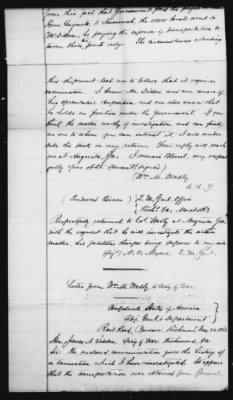 from this fact that Government paid the freight
from Augusta to Savannah, the
Mr. Dillon, he paying the expense of transportation to
these points only. The circumstances attending
this shipment lead me to believe that it requires
examination. I know Mr. Dillon and am aware of
his speculative and am also aware that
he holds no position under the Government. If you
think the matter worthy of investigation, and can find
no one to whom you can entrust it, I will under
take the task on my return. Your reply will reach
me at Augusta, Ga. I remain Colonel, very respect
fully your obdt servant (signed)
Wm. M. Wadley
(Endorsed thereon) Q.M. Genl. Office
Richd. Va.
Respectfully returned to Col. Wadley at Augusta Ga.
with the request that he will investigate the within
matter, his facilities therefor being superior to my own
(sigd) A. C. Myers, Q.M. Genl.
Letter from Wm. M. Wadley to Secy of War.
Confederate States of America
Adj. Genl's Department
Rail Road Bureau Richmond May
Hon. James A. Seddon, Secy of War, Richmond, Va.
Sir: The enclosed communication gives the history of
a transaction which I have investigated. It appears
that the transportation was obtained from General